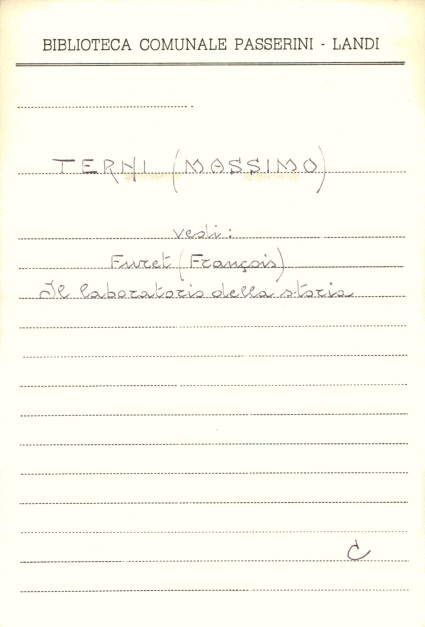 BIBLIOTECA COMUNALE PASSERINI - LANDI
TERNI (MASSIMO)
vedi:
Furet (François)
Il laboratorio della storia
C